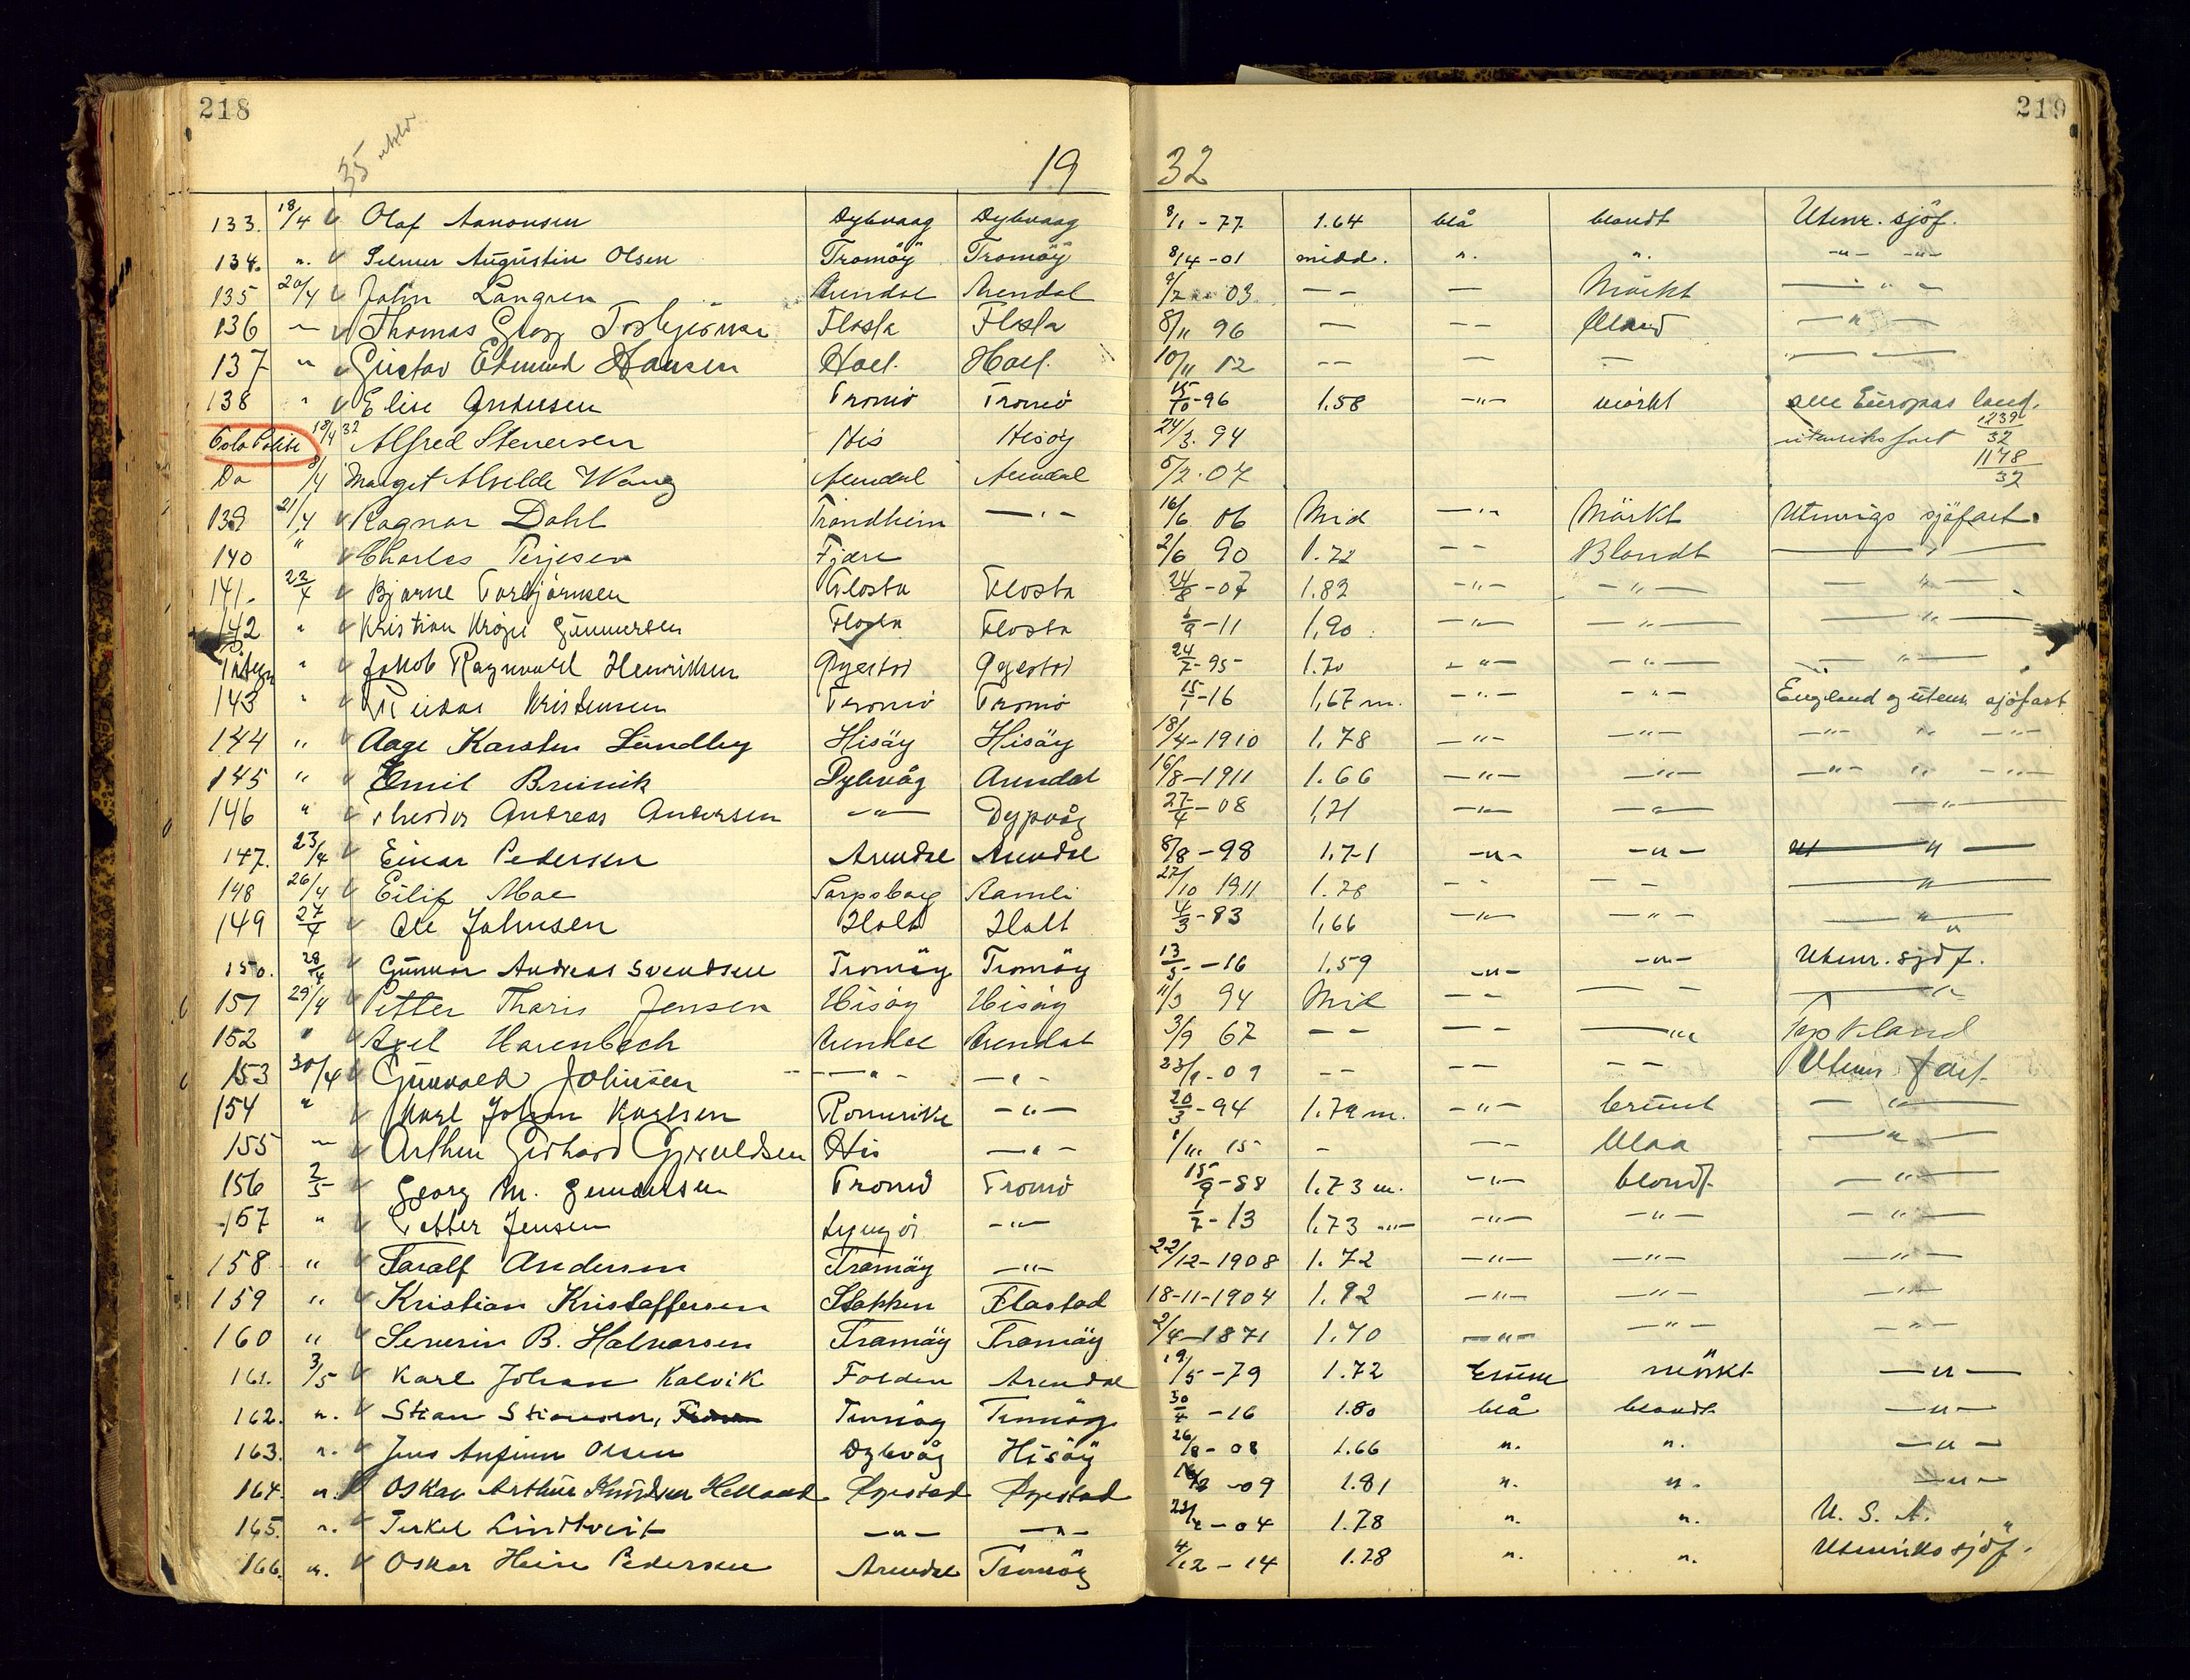 218
219
35
19 32
133. 18/4 Olaf Aanonsen Dybvaag Dybvaag 8/1 - 77 1.64 blå blondt Utenr. sjöf.
134. ". Selmer Augustin Olsen Tromöy Tromöy 8/14 - 01 midd. ". ". -"- -"-
135 20/4 John Langren Arendal Arendal 03 — — — Mörkt — " —
136 " Thomas Georg Torbjörnsen Flosta Flosta 8/11 96 — — — Bland — " —
137 " Gustav Edmund Hansen Holt. Holt. 10/11 12 — — — — — —
138 " Elise Andersen Tromö Tromö 15/10-96 1,58 -"- mörkt alle Europas land.
Oslo Politi 18/4 32 Alfred Stenersen His Hisöy 24/3. 94 utenriks fart 1239/32
Do 8/4 Margit Alvilde Wang Arendal Arendal 5/2. 07 1178/32
139 21/4 Ragnar Dahl Trondheim — " — 16/6 06 Mid — " — Mörkt Utenrigs sjöfart.
140 " Charles Terjesen Fjære 2/6 90 1.72 — — Blondt — " —
141. 22/4 Bjarne Torbjörnsen Flosta Flosta 24/8-07 1.82 -"- -"- -"-
142 " Kristian Krogh Gunnersen Flosta Flosta 6/9-11 1,90 -"- -"- -"-
Påtegn " Jakob Ragnvald Henriksen Öyestad Öyestad 24/7-95 1.70 -"- -"- -"-
143 " Reidar Kristensen Tromö Tromö 15/1-16 1,67 m. -"- -"- England og utenr. sjöfart
144 " Aage Karsten Lundby Hisöy Hisöy 18/4-1910 1,78 -"- -"- -"- " -"-
145 " Emil Brunvik Dybvåg Arendal 16/8-1911 1.66 -"- -"- -"- " -"-
146 " Theodor Andreas Andersen -"- Dypvåg 27/4-08 1,71 -"- -"- -"-
147. 23/4 Einar Pedersen Arendal Arendal 8/8-98 1,71 -"- -"- -"-
148 26/4 Eilif Moe Sarpsborg Aamli 27/10 1911 1.78 - - - - -"-
149 27/4 Ole Johnsen Holt Holt 4/3-83 1,66 -"- -"- -"-
150. 28/4 Gunnar Andreas Svendsen Tromöy Tromöy 13/5-16 1.59 -"- -"- Utenr. sjöf.
151 29/4 Petter Tharis Jensen Hisöy Hisöy 11/3 94 Mid — — — — — " —
152 " Axel Harenbech Arendal Arendal 3/9 67 — — — — — " Tyskland
153 30/4 Gunvald Johnsen — " — — " — 23/9-09 — — — — Utenr fart.
154 " Karl Johan Karlsen Romerike -"- 20/3-94 1.79 m. -"- brunt -"-
155 " Arthur Gerhard Gjeruldsen His — " — 1/11 15 - — — Blaa — " —
156 2/5 Georg M. Gundersen Tromö Tromö 15/9-88 1,73 m. -"- blondt -"-
157 " Petter Jensen Lyngör -"- 1/7-13 1,73 -"- -"- -"- -"-
158 " Taralf Andersen Tromöy -"- 22/12-1908 1.72 -"- -"- -"-
159 " Kristian Kristoffersen Stokken Flostad 18-11-1904 1.92 -"- -"- -"-
160 " Severin B. Halvorsen Tromöy Tromöy 2/4-1871 1.70 -"- -"- -"-
161. 3/5 Karl Johan Kalvik Folden Arendal 19/5-79 1.72 brune mörkt -"-
162. ". Stian Stiansen, Tromöy Tromöy 30/4-16 1.80 blå blondt -"-
163. ". Jens Anfinn Olsen Dybvåg Hisöy 26/8-08 1.66 ". ". -"-
164. ". Oskar Arthur Knudsen Helland Öyestad Öyestad -09 1.81 ". ". -"-
165. ". Terkel Lindtveit -"- -"- -04 1.78 ". ". U. S. A.
166. ". Oskar Hein Pedersen Arendal Tromöy 4/12-14 1.78 ". ". Utenriks sjöf.